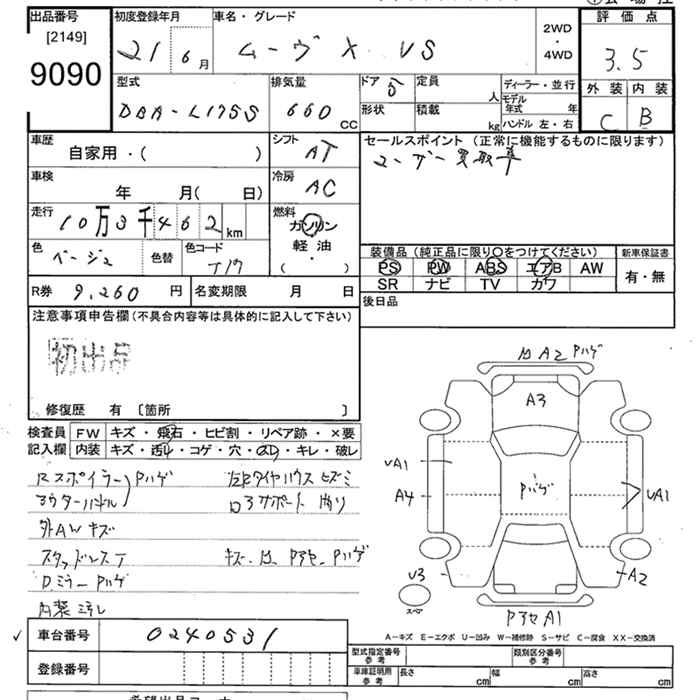 出品番号
[2149]
9090
初度登録年月
21 6 月
車名・グレード
ムーヴ X VS
2WD
・
4WD
評価点
3.5
外装 内装
C B
型式
DBA-L175S
排気量
660 CC
ドア
5
形状
定員
人
積載
kg
ディーラー・並行
モデル年式 年
ハンドル 左・右
車歴
自家用・( )
シフト
AT
セールスポイント (正常に機能するものに限ります)
ユーザー買取車
車検
年 月( 日)
冷房
AC
走行
10万3千462 km
燃料
ガソリン
軽油
( ・ )
色
ベージュ
色替
色コード
T17
装備品 (純正品に限り○をつけてください)
PS PW ABS エアB AW
SR ナビ TV カワ
新車保証書
有・無
R券 9,260 円
名変期限 月 日
後日品
注意事項申告欄(不具合内容等は具体的に記入して下さい)
初出品
修復歴 有 〔箇所 〕
検査員
記入欄
FW キズ・飛石・ヒビ割・リペア跡・×要
内装 キズ・汚れ・コゲ・穴・スレ・キレ・破レ
Rスポイラー
アウターハンドル
Pハゲ
外AWキズ
スタッドレスT
D.ミラーPハゲ
内装汚レ
キズ、凹、Pアセ、Pハゲ
凹A2 Pハゲ
A3
UA1
A4
Pハゲ
UA1
U3
A2
スペア
PアセA1
A-キズ E-エクボ U-凹み W-補修跡 S-サビ C-腐食 XX-交換済
✓
車台番号
0240531
登録番号
型式指定番号
参考
類別区分番号
参考
車庫証明用
参考
長さ cm
幅 cm
高さ cm